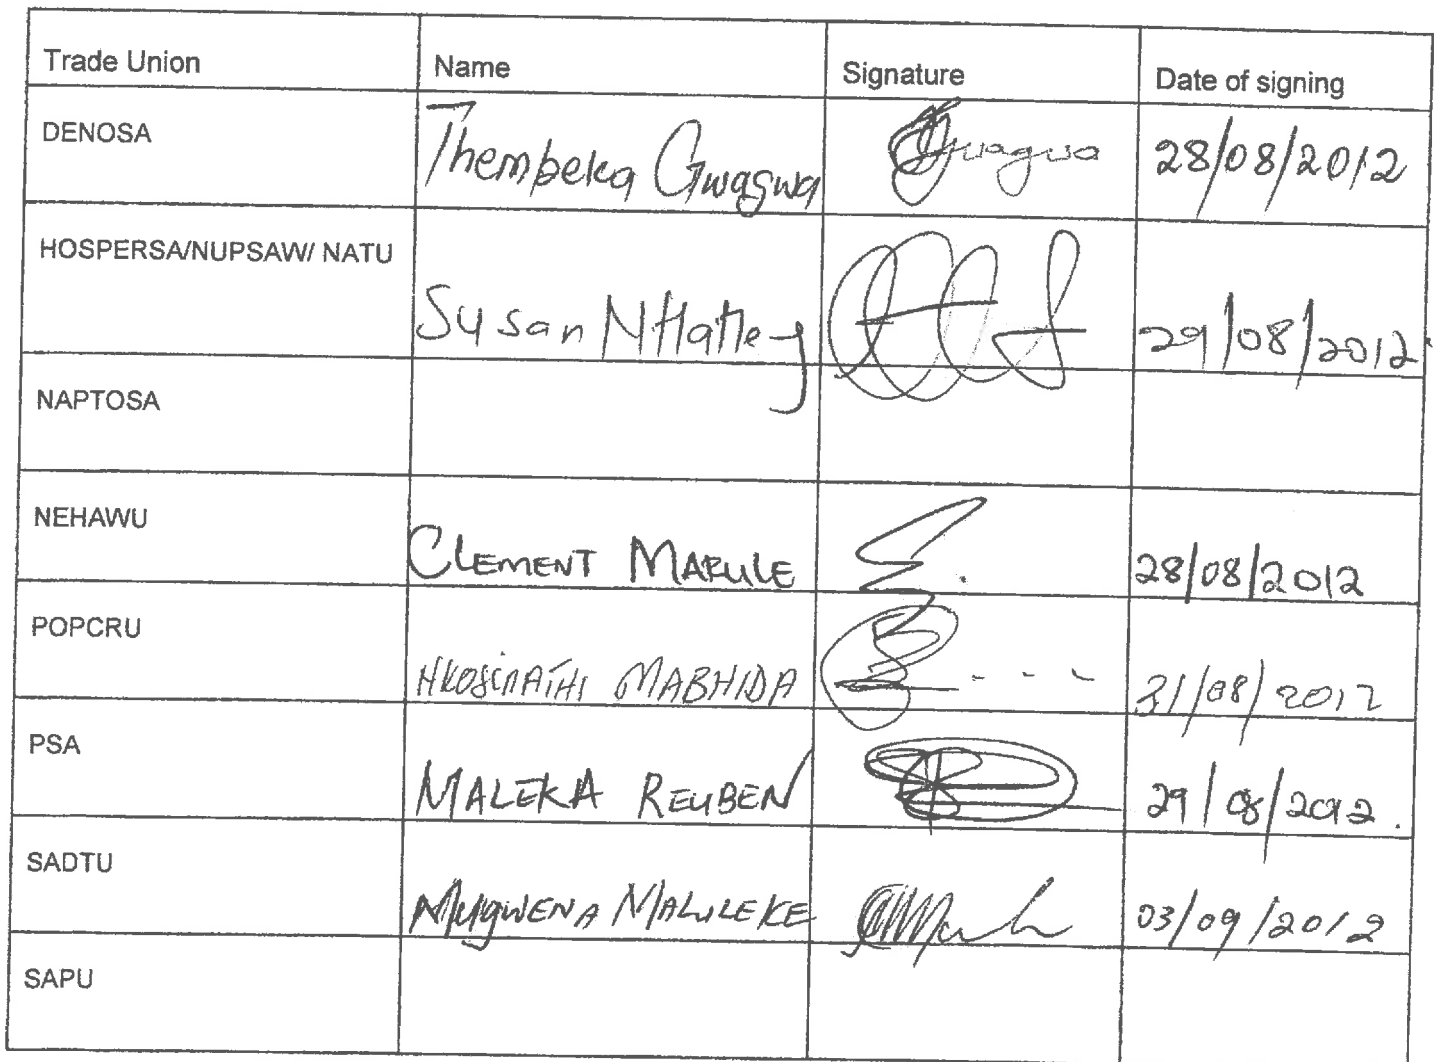 Trade Union Name Signature Date of signing
DENOSA Thembeka Gwagwa Gwagwa 28/08/2012
HOSPERSA/NUPSAW/ NATU Susan 29/08/2012
NAPTOSA
NEHAWU CLEMENT MARULE 28/08/2012
POPCRU NKOSINATHI MABHIDA 31/08/2012
PSA MALEKA REUBEN 29/08/2012.
SADTU MUGWENA MALULEKE 03/09/2012
SAPU